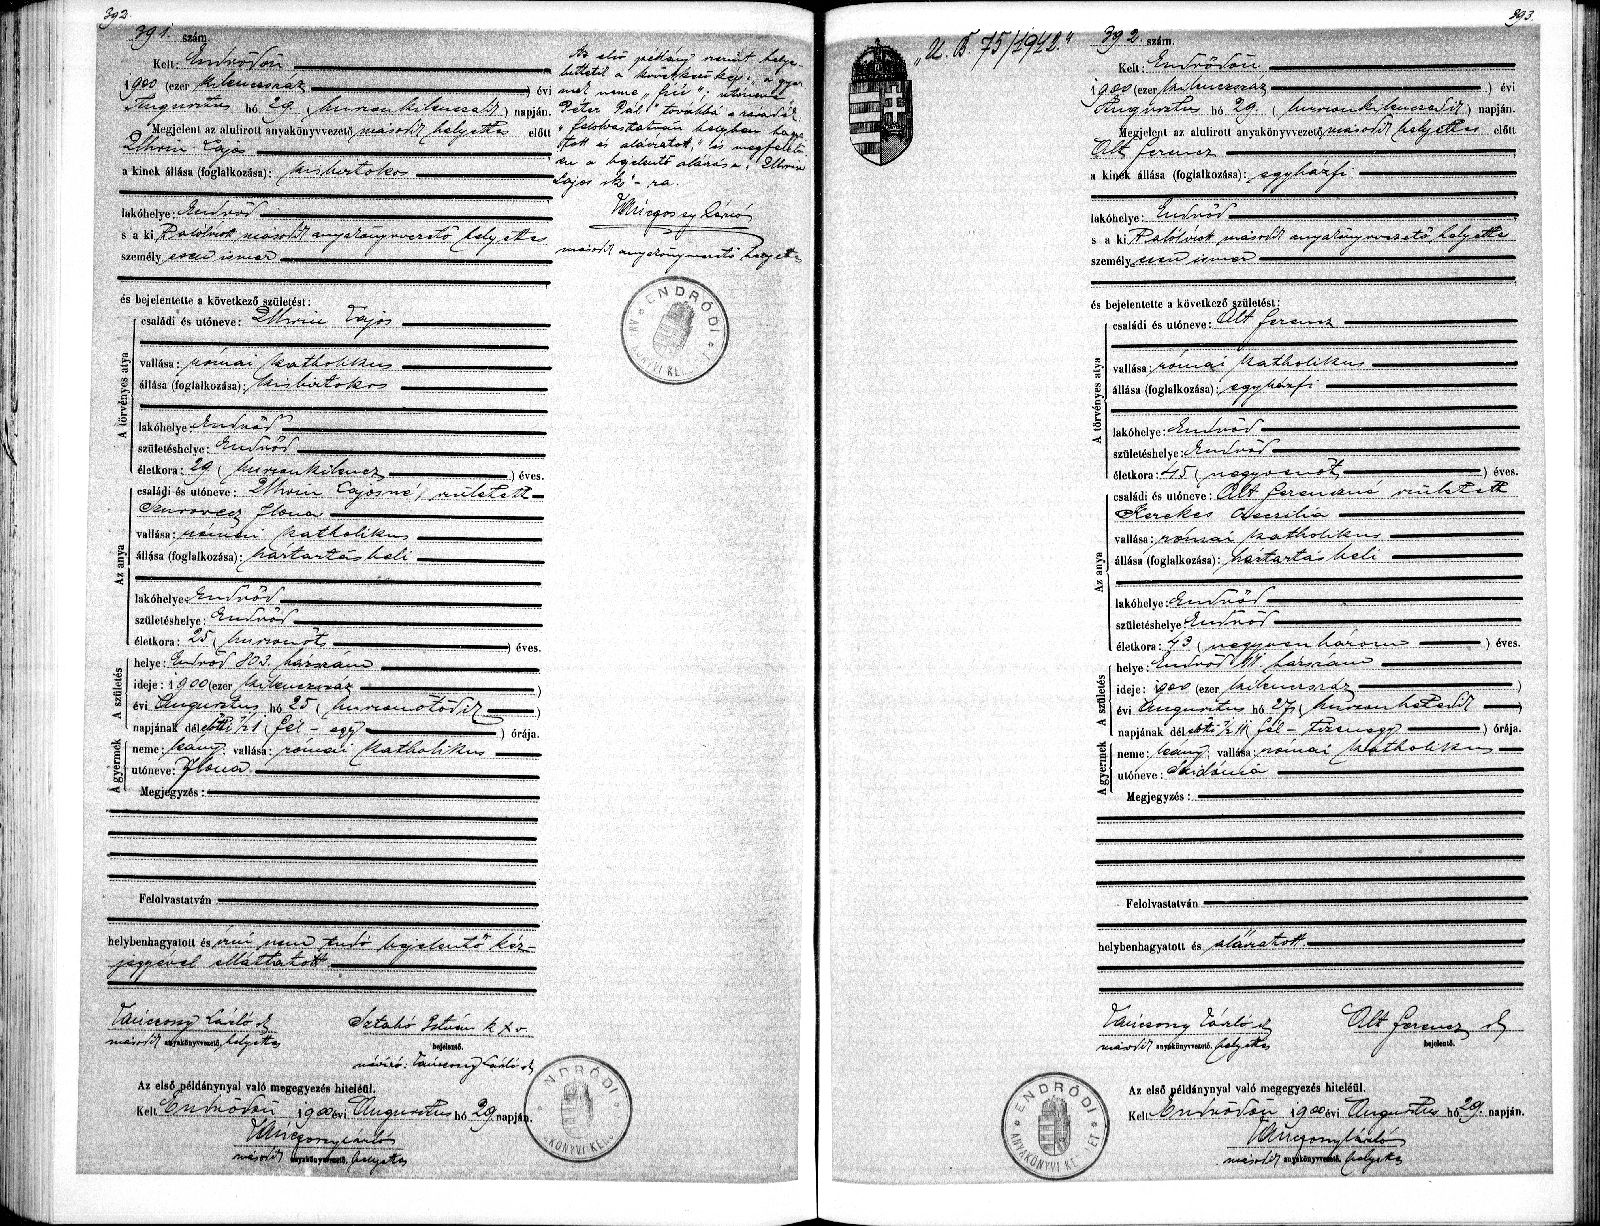 392.
391. szám.
Kelt: Endrődön
1900 (ezer kilenczszáz) évi
Augusztus hó 29. (huszonkilenczedik) napján.
Megjelent az alulirott anyakönyvvezető második helyettes előtt
Lajos
a kinek állása (foglalkozása): kisbirtokos
lakóhelye: Endrőd
s a ki második anyakönyvvezető helyettes
személyesen ismer
és bejelentette a következő születést:
A törvényes atya
családi és utóneve: Lajos
vallása: római katholikus
állása (foglalkozása): kisbirtokos
lakóhelye Endrőd
születéshelye: Endrőd
életkora: 29 (huszonkilencz) éves.
Az anya
családi és utóneve: Lajosné, született
Ilona
vallása: római katholikus
állása (foglalkozása): háztartásbeli
lakóhelye: Endrőd
születéshelye: Endrőd
életkora: 25 (huszonöt) éves.
A születés
helye: Endrőd 803. házszám
ideje: 1900 (ezer kilenczszáz)
évi Augusztus hó 25 (huszonötödik)
napjának délelőtti ½1 (fél-egy) órája.
A gyermek
neme: leány; vallása: római katholikus
utóneve: Ilona
Megjegyzés:
Felolvastatván
helybenhagyatott és írni nem tudó bejelentő kéz-
jegyével elláttatott
László
második anyakönyvvezető, helyettes
Szabó István k X v.
bejelentő.
névíró: László
Az első példánynyal való megegyezés hiteléül.
Kelt Endrődön 1900 évi Augusztus hó 29. napján.
László
második anyakönyvvezető, helyettes
ENDRŐDI
Az első példány szerint helye-
sbíttetik a következőkép: a gyer-
mek neme „fiú"; utóneve
„Péter Pál" továbbá a záradék
„felolvastatván helyben hagya-
tott és aláíratott" és megfelelő-
en a bejelentő aláírása:
Lajos sk"-ra.
László
második anyakönyvvezető helyettes
ENDRŐDI
393.
„U. B 75/1942."
392 szám.
Kelt: Endrődön
1900 (ezer kilenczszáz) évi
Augusztus hó 29. (huszonkilenczedik) napján.
Megjelent az alulirott anyakönyvvezető második helyettes előtt
Alt Ferencz
a kinek állása (foglalkozása): egyházfi
lakóhelye: Endrőd
s a ki második anyakönyvvezető helyettes
személyesen ismer
és bejelentette a következő születést:
A törvényes atya
családi és utóneve: Alt Ferencz
vallása: római katholikus
állása (foglalkozása): egyházfi
lakóhelye: Endrőd
születéshelye: Endrőd
életkora: 45 (negyvenöt) éves.
Az anya
családi és utóneve: Alt Ferenczné született
Kerekes Czeczilia
vallása: római katholikus
állása (foglalkozása): háztartásbeli
lakóhelye: Endrőd
születéshelye: Endrőd
életkora: 43 (negyvenhárom) éves.
A születés
helye: Endrőd házszám
ideje: 1900 (ezer kilenczszáz)
évi Augusztus hó 27 (huszonhetedik)
napjának délelőtti ½11 (fél-tizenegy) órája.
A gyermek
neme: leány; vallása: római katholikus
utóneve: Szidónia
Megjegyzés:
Felolvastatván
helybenhagyatott és aláíratott.
László
második anyakönyvvezető, helyettes
Alt Ferencz
bejelentő.
Az első példánynyal való megegyezés hiteléül.
Kelt Endrődön 1900 évi Augusztus hó 29. napján.
László
második anyakönyvvezető, helyettes
ENDRŐDI